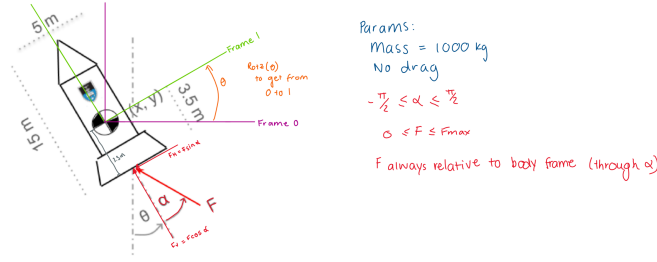 5 m
Frame 1
Rotz(θ)
to get from
0 to 1
θ
(x, y)
3.5 m
Frame 0
15 m
Fx = Fsinα
θ
α
F
Fy = Fcosα
Params:
Mass = 1000 kg
No drag
-π/2 ≤ α ≤ π/2
0 ≤ F ≤ Fmax
F always relative to body frame (through α)